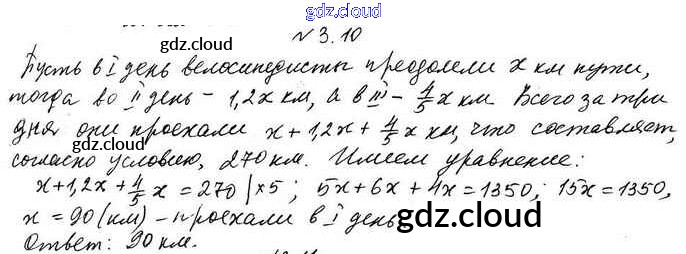 gdz.cloud
№ 3.10
gdz.cloud
Пусть в I день велосипедисты преодолели x км пути,
тогда во II день – 1,2x км, а в III – 4/5 x км. Всего за три
дня они проехали x + 1,2x + 4/5 x км, что составляет,
gdz.cloud
согласно условию, 270 км. Имеем уравнение:
x + 1,2x + 4/5 x = 270 | ×5 ; 5x + 6x + 4x = 1350; 15x = 1350,
x = 90 (км) – проехали в I день
gdz.cloud
Ответ: 90 км.
gdz.cloud